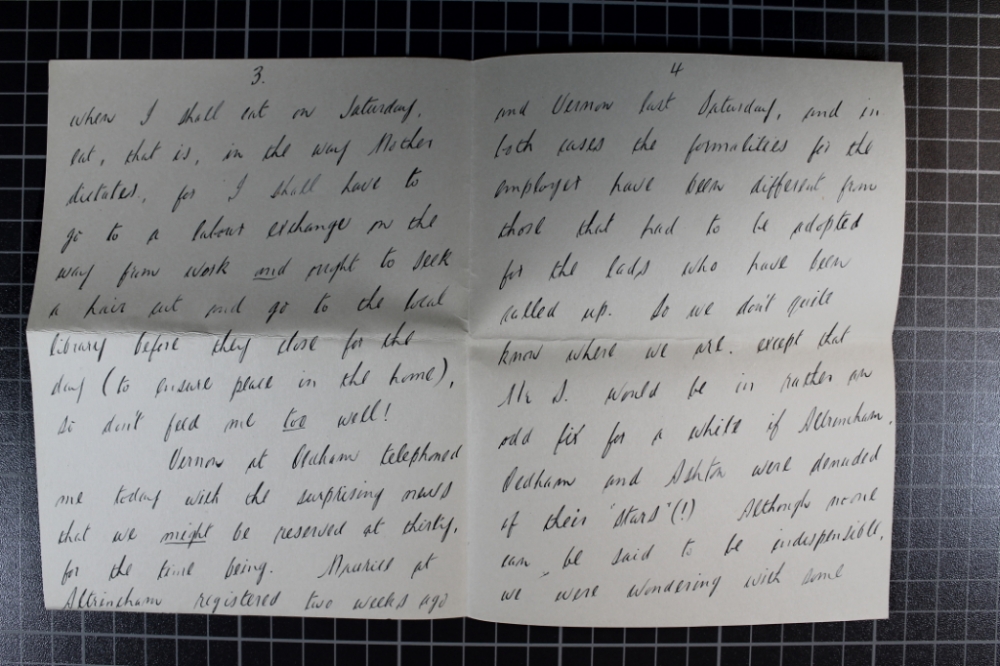 3.
when I shall eat on Saturday,
eat, that is, in the way Mother
dictates, for I shall have to
go to a labour exchange on the
way from work and ought to seek
a hair cut and go to the local
library before they close for the
day (to ensure peace in the home),
so don't feed me too well!
Vernon at Oldham telephoned
me today with the surprising news
that we might be reserved at thirty,
for the time being. at
Altrincham registered two weeks ago
4
and Vernon last Saturday, and in
both cases the formalities for the
employer have been different from
those that had to be adopted
for the lads who have been
called up. So we don't quite
know where we are, except that
Mr S. would be in rather an
odd fix for a while if Altrincham,
Oldham and Ashton were denuded
of their "stars" (!) Although no one
can be said to be indispensible,
we were wondering with some